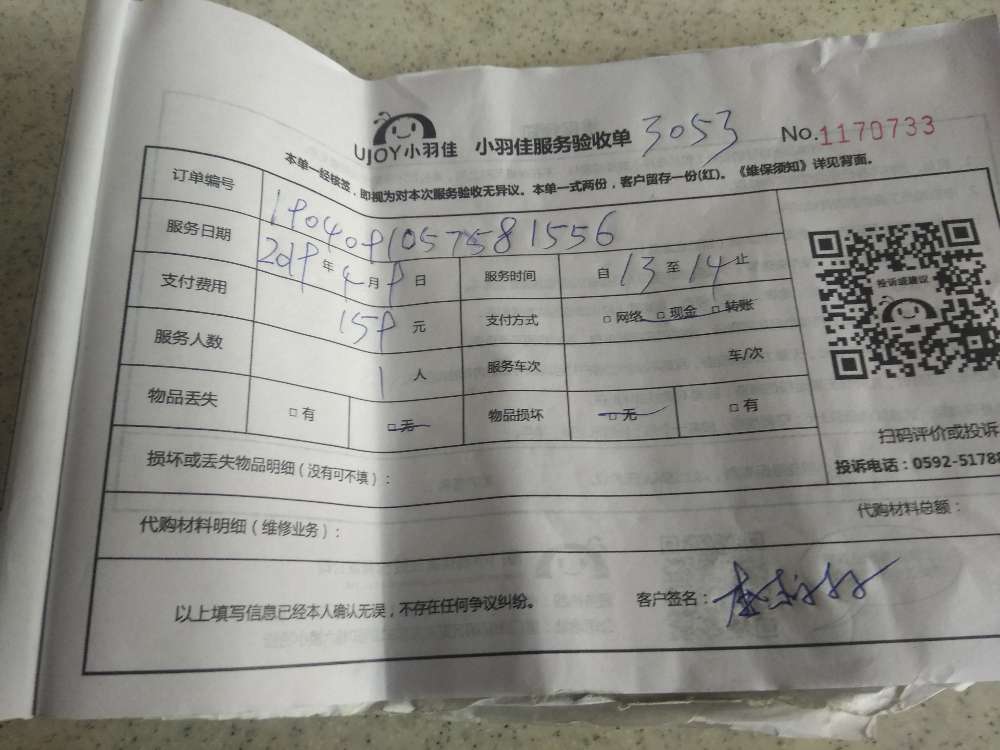 UJOY小羽佳 小羽佳服务验收单 3053 No.1170733
本单一经核签，即视为对本次服务验收无异议。本单一式两份，客户留存一份(红)。《维保须知》详见背面。
订单编号 190409105758 1556
服务日期 2019年4月9日 服务时间 自13至14止
支付费用 159元 支付方式 □网络 □现金 □转账
服务人数 1人 服务车次 车/次
物品丢失 □有 □无 物品损坏 □无 □有
投诉或建议
扫码评价或投诉
投诉电话：0592-51788
损坏或丢失物品明细（没有可不填）：
代购材料明细（维修业务）： 代购材料总额：
以上填写信息已经本人确认无误，不存在任何争议纠纷。 客户签名：